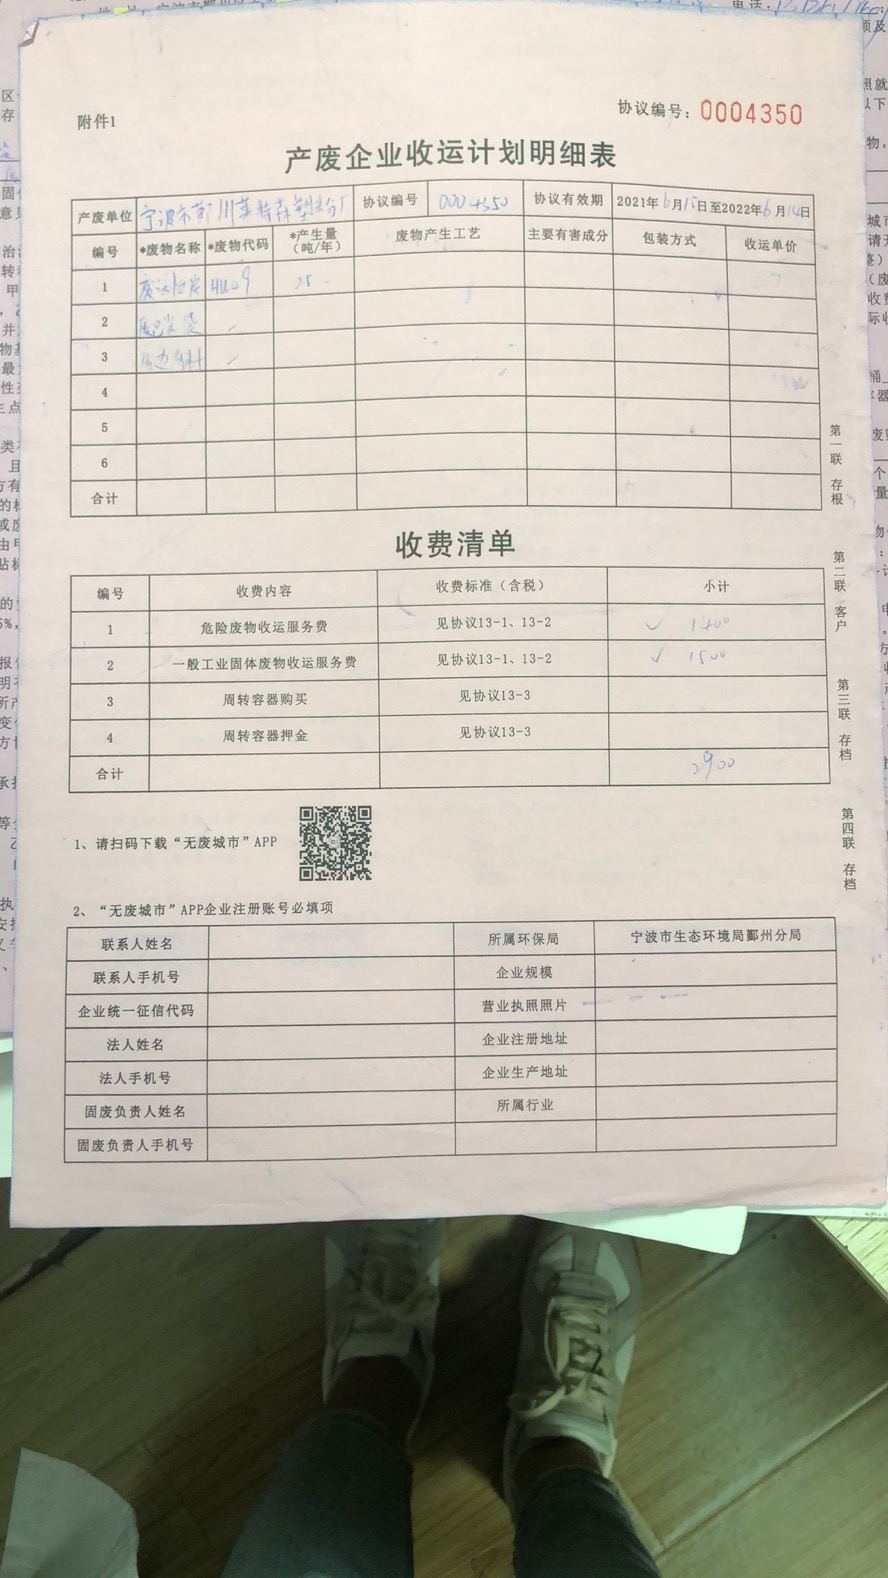 附件1
协议编号：0004350
产废企业收运计划明细表
产废单位 协议编号 0004350 协议有效期 2021年6月15日至2022年6月14日
编号 *废物名称 *废物代码 *产生量（吨/年） 废物产生工艺 主要有害成分 包装方式 收运单价
1 废活性炭
2
3
4
5
6
合计
第一联 存根
收费清单
编号 收费内容 收费标准（含税） 小计
1 危险废物收运服务费 见协议13-1、13-2 ✓ 1400
2 一般工业固体废物收运服务费 见协议13-1、13-2 ✓ 1500
3 周转容器购买 见协议13-3
4 周转容器押金 见协议13-3
合计 2900
第二联 客户
第三联 存档
第四联 存档
1、请扫码下载“无废城市”APP
2、“无废城市”APP企业注册账号必填项
联系人姓名 所属环保局 宁波市生态环境局鄞州分局
联系人手机号 企业规模
企业统一征信代码 营业执照照片
法人姓名 企业注册地址
法人手机号 企业生产地址
固废负责人姓名 所属行业
固废负责人手机号